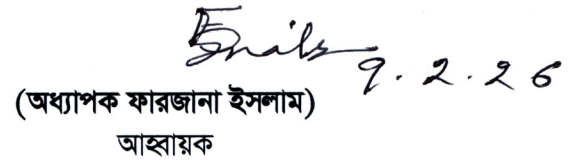 9.2.26
(অধ্যাপক ফারজানা ইসলাম)
আহ্বায়ক